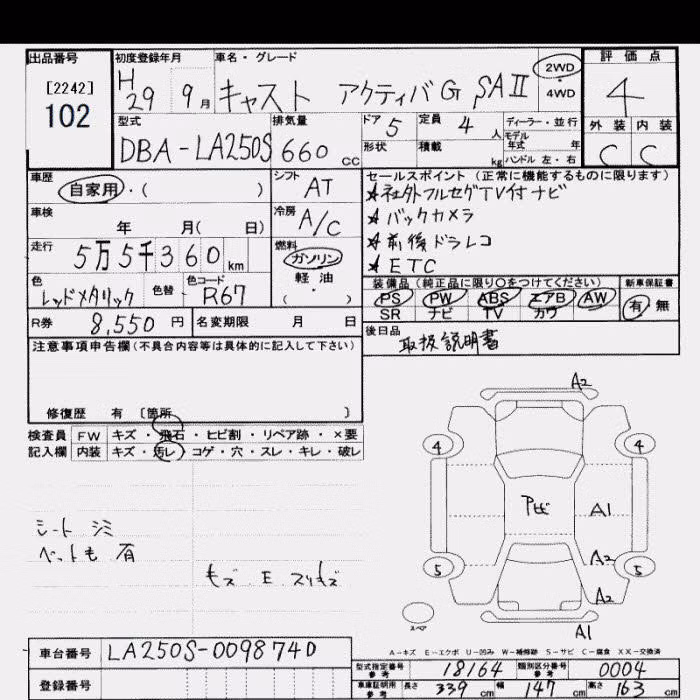 出品番号
[2242]
102
初度登録年月
H 29 9月
車名・グレード
キャスト アクティバG SAⅡ
2WD
・
4WD
評価点
4
外装 内装
C C
型式
DBA-LA250S
排気量
660 cc
ドア 5
定員 4 人
形状
積載 kg
ディーラー・並行
モデル年式 年
ハンドル 左・右
車歴
自家用・( )
シフト
AT
車検
年 月( 日)
冷房
A/C
走行
5万5千360km
燃料
ガソリン
・
軽油
( )
色
レッドメタリック
色替
色コード
R67
R券 8,550円
名変期限 月 日
セールスポイント(正常に機能するものに限ります)
★社外フルセグTV付ナビ
★バックカメラ
★前後ドラレコ
★ETC
装備品(純正品に限り〇をつけてください)
PS PW ABS エアB AW
SR ナビ TV カワ
新車保証書
有・無
後日品
取扱説明書
注意事項申告欄(不具合内容等は具体的に記入して下さい)
修復歴 有 〔箇所 〕
検査員
記入欄
FW キズ・飛石・ヒビ割・リペア跡・×要
内装 キズ・汚レ・コゲ・穴・スレ・キレ・破レ
シート シミ
ペットも 有
モズ E スリキズ
A2
4 4
アビ A1
A2
5 5
A2
スペア
A1
A-キズ E-エクボ U-凹み W-補修跡 S-サビ C-腐食 XX-交換済
車台番号 LA250S-0098740
登録番号
型式指定番号
参考
18164
類別区分番号
参考
0004
車庫証明用
参考
長さ 339 cm 幅 147 cm 高さ 163 cm